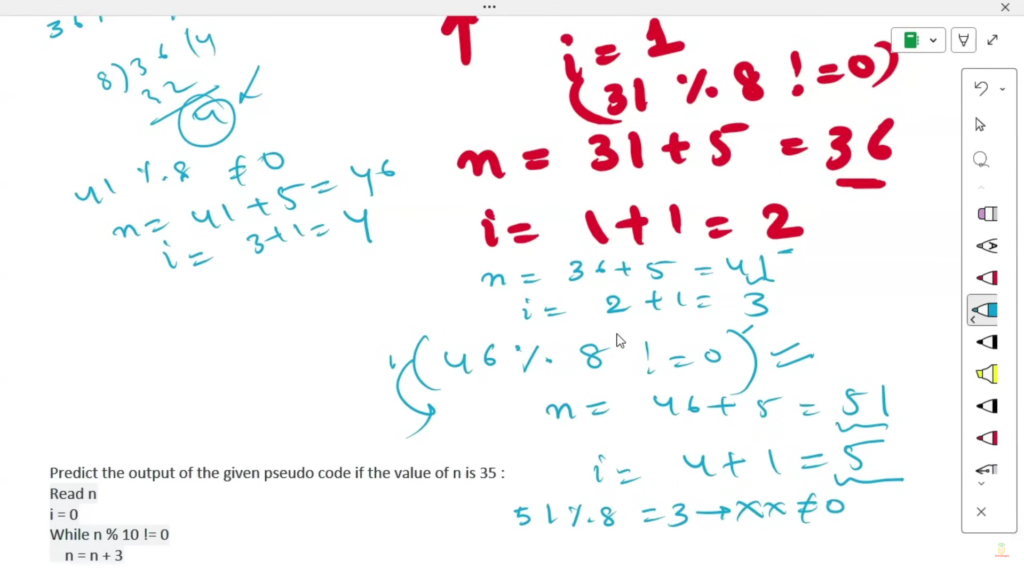 36
8)36(4
32
4
41 % 8 ≠ 0
n = 41 + 5 = 46
i = 3+1 = 4
i = 1
(31 % 8 != 0)
n = 31 + 5 = 36
i = 1 + 1 = 2
n = 36 + 5 = 41
i = 2 + 1 = 3
(46 % 8 != 0) =
n = 46 + 5 = 51
i = 4 + 1 = 5
51 % 8 = 3 → xx ≠ 0
Predict the output of the given pseudo code if the value of n is 35 :
Read n
i = 0
While n % 10 != 0
n = n + 3